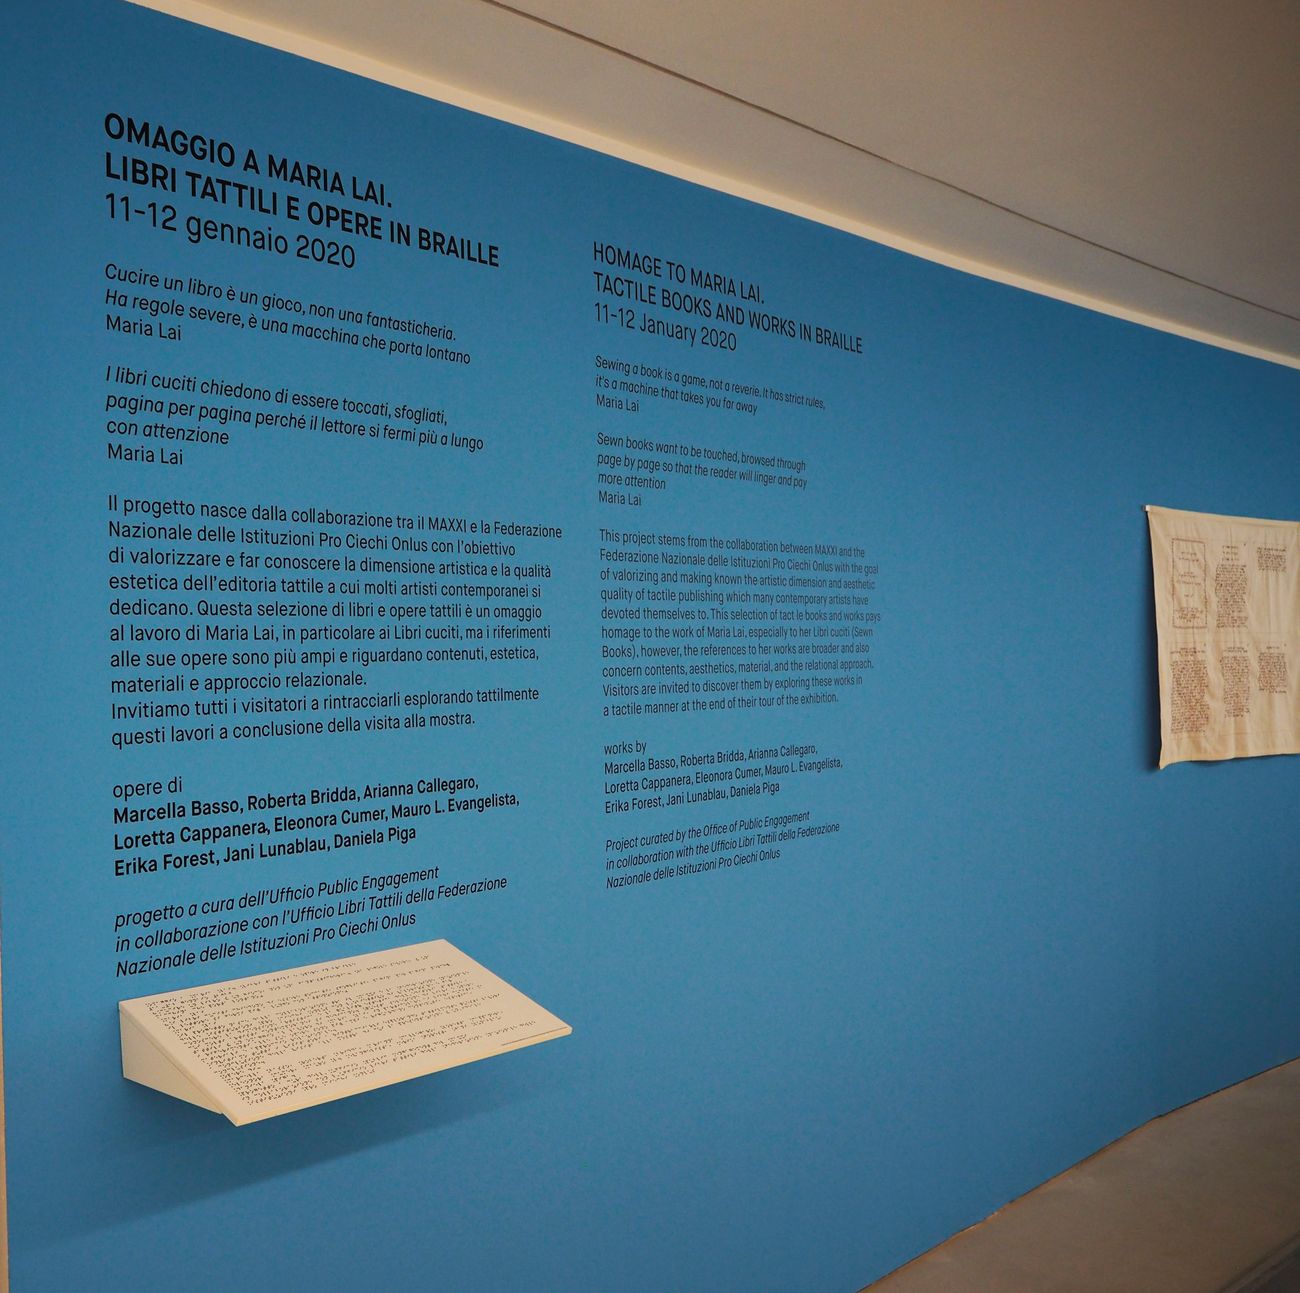 OMAGGIO A MARIA LAI.
LIBRI TATTILI E OPERE IN BRAILLE
11-12 gennaio 2020
Cucire un libro è un gioco, non una fantasticheria.
Ha regole severe, è una macchina che porta lontano
Maria Lai
I libri cuciti chiedono di essere toccati, sfogliati,
pagina per pagina perché il lettore si fermi più a lungo
con attenzione
Maria Lai
Il progetto nasce dalla collaborazione tra il MAXXI e la Federazione
Nazionale delle Istituzioni Pro Ciechi Onlus con l'obiettivo
di valorizzare e far conoscere la dimensione artistica e la qualità
estetica dell'editoria tattile a cui molti artisti contemporanei si
dedicano. Questa selezione di libri e opere tattili è un omaggio
al lavoro di Maria Lai, in particolare ai Libri cuciti, ma i riferimenti
alle sue opere sono più ampi e riguardano contenuti, estetica,
materiali e approccio relazionale.
Invitiamo tutti i visitatori a rintracciarli esplorando tattilmente
questi lavori a conclusione della visita alla mostra.
opere di
Marcella Basso, Roberta Bridda, Arianna Callegaro,
Loretta Cappanera, Eleonora Cumer, Mauro L. Evangelista,
Erika Forest, Jani Lunablau, Daniela Piga
progetto a cura dell'Ufficio Public Engagement
in collaborazione con l'Ufficio Libri Tattili della Federazione
Nazionale delle Istituzioni Pro Ciechi Onlus
HOMAGE TO MARIA LAI.
TACTILE BOOKS AND WORKS IN BRAILLE
11-12 January 2020
Sewing a book is a game, not a reverie. It has strict rules,
it's a machine that takes you far away
Maria Lai
Sewn books want to be touched, browsed through
page by page so that the reader will linger and pay
more attention
Maria Lai
This project stems from the collaboration between MAXXI and the
Federazione Nazionale delle Istituzioni Pro Ciechi Onlus with the goal
of valorizing and making known the artistic dimension and aesthetic
quality of tactile publishing which many contemporary artists have
devoted themselves to. This selection of tact le books and works pays
homage to the work of Maria Lai, especially to her Libri cuciti (Sewn
Books), however, the references to her works are broader and also
concern contents, aesthetics, material, and the relational approach.
Visitors are invited to discover them by exploring these works in
a tactile manner at the end of their tour of the exhibition.
works by
Marcella Basso, Roberta Bridda, Arianna Callegaro,
Loretta Cappanera, Eleonora Cumer, Mauro L. Evangelista,
Erika Forest, Jani Lunablau, Daniela Piga
Project curated by the Office of Public Engagement
in collaboration with the Ufficio Libri Tattili della Federazione
Nazionale delle Istituzioni Pro Ciechi Onlus